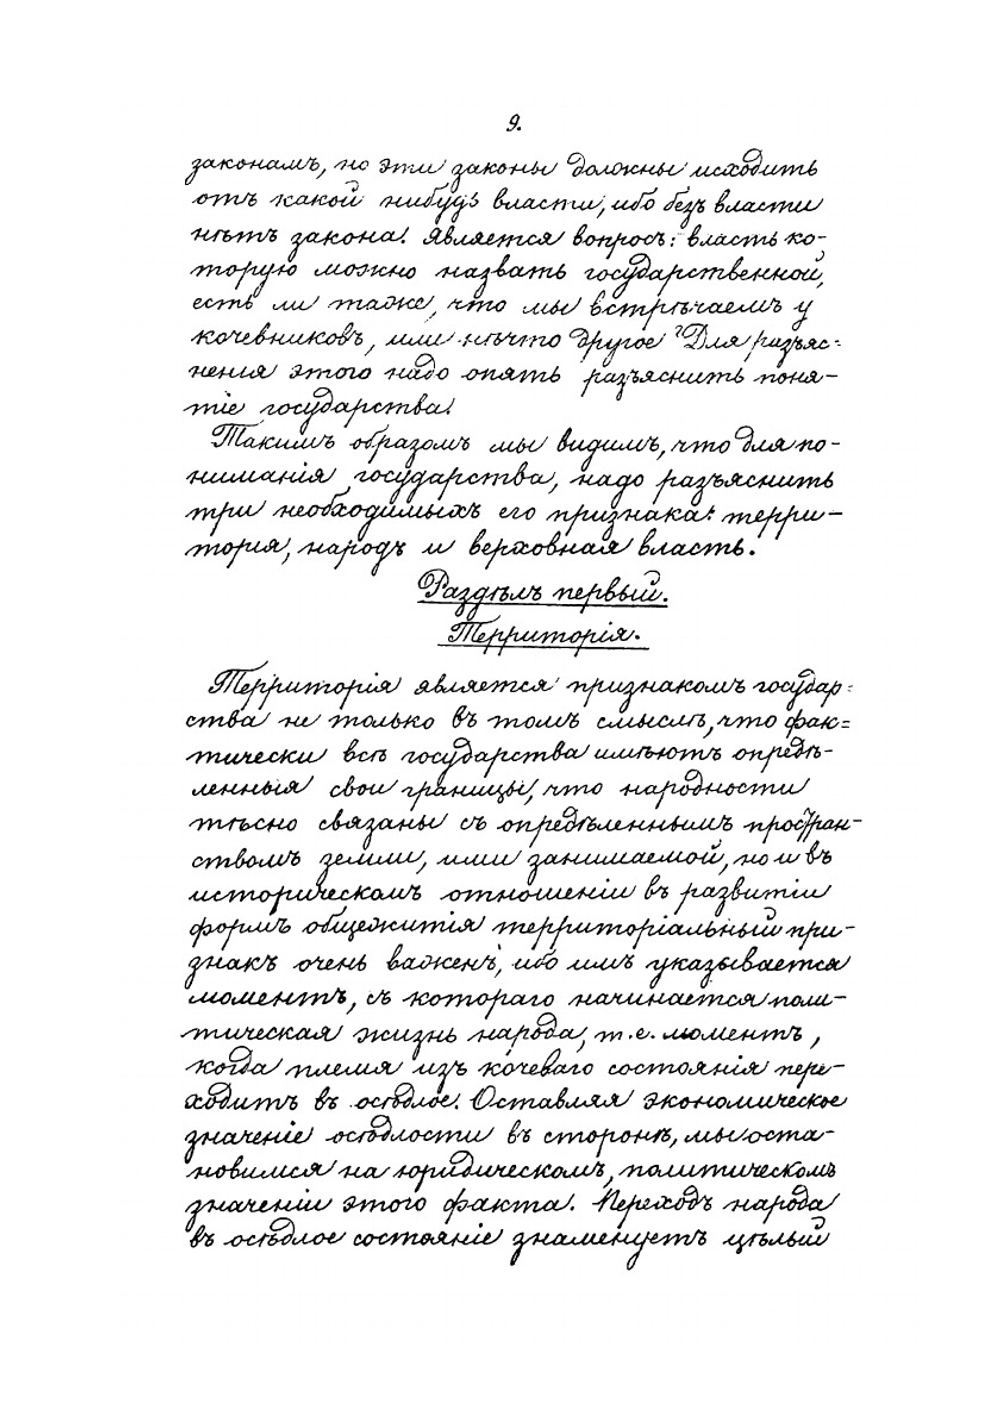 9.
законамъ, но эти законы должны исходить
отъ какой нибудь власти, ибо безъ власти
нѣтъ закона! Является вопросъ: власть ко-
торую можно назвать государственной,
есть ли таже, что мы встрѣчаемъ у
кочевниковъ, или нѣчто другое? Для разъяс-
ненія этого надо опять разъяснить поня-
тіе государства!
Такимъ образомъ мы видимъ, что для по-
ниманія государства, надо разъяснить
три необходимыхъ его признака: терри-
торія, народъ и верховная власть.
Раздѣлъ первый.
Территорія.
Территорія является признакомъ государ-
ства не только въ томъ смыслѣ, что фак-
тически всѣ государства имѣютъ опредѣ-
ленныя свои границы, что народности
тѣсно связаны съ опредѣленнымъ простран-
ствомъ земли, ими занимаемой, но и въ
историческомъ отношеніи въ развитіи
формъ общежитія территоріальный при-
знакъ очень важенъ, ибо имъ указывается
моментъ, съ котораго начинается поли-
тическая жизнь народа, т.е. моментъ,
когда племя изъ кочеваго состоянія пере-
ходитъ въ осѣдлое. Оставляя экономическое
значеніе осѣдлости въ сторонѣ, мы оста-
новимся на юридическомъ, политическомъ
значеніи этого факта. Переходъ народа
въ осѣдлое состояніе знаменуетъ цѣлый